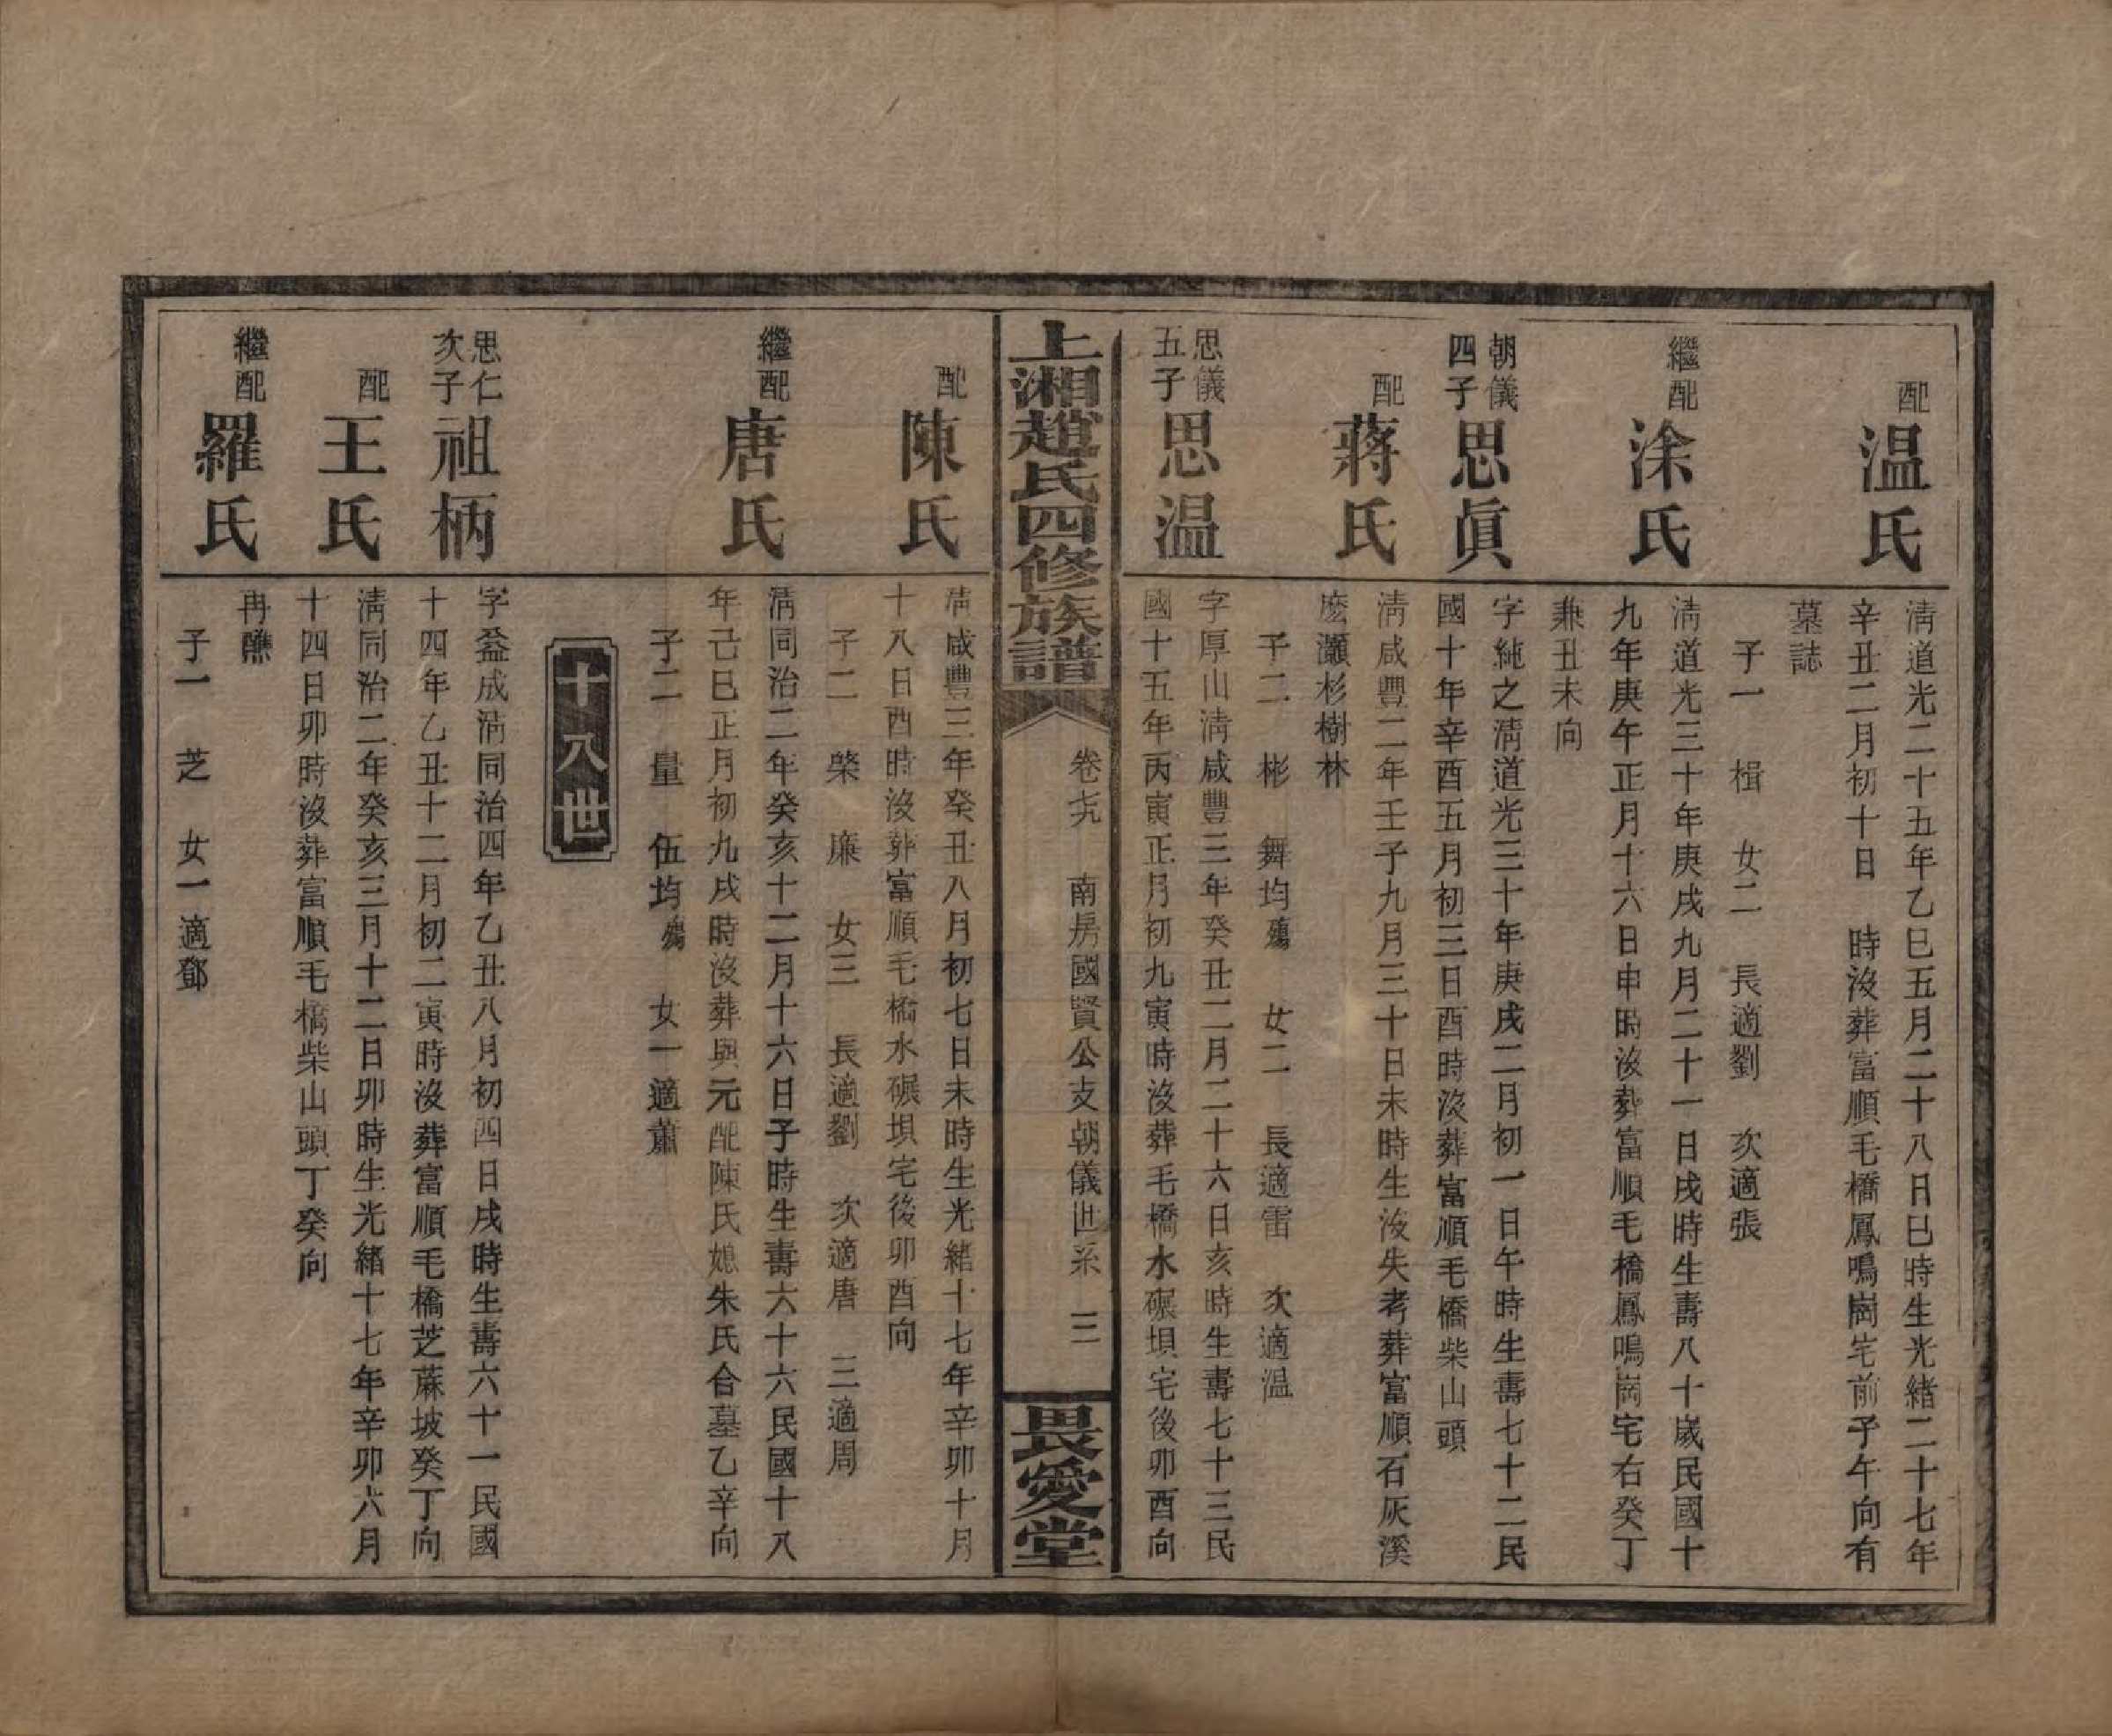 配
温氏
清道光二十五年乙巳五月二十八日巳時生光緒二十七年
辛丑二月初十日　時沒葬富順毛橋鳳鳴崗宅前子午向有
墓誌
子一　楫　女二　長適劉　次適張
繼配
涂氏
清道光三十年庚戌九月二十一日戌時生壽八十歲民國十
九年庚午正月十六日申時沒葬富順毛橋鳳鳴崗宅右癸丁
兼丑未向
朝儀
四子
思眞
字純之清道光三十年庚戌二月初一日午時生壽七十二民
國十年辛酉五月初三日酉時沒葬富順毛橋柴山頭
配
蔣氏
清咸豐二年壬子九月三十日未時生沒失考葬富順石灰溪
麽灝杉樹林
子二　彬　舞均殤　女二　長適雷　次適温
思儀
五子
思温
字厚山清咸豐三年癸丑二月二十六日亥時生壽七十三民
國十五年丙寅正月初九寅時沒葬毛橋水碾垻宅後卯酉向
上湘趙氏四修族譜
卷七九　南房國賢公支朝儀世系　三
畏愛堂
配
陳氏
清咸豐三年癸丑八月初七日未時生光緒十七年辛卯十月
十八日酉時沒葬富順毛橋水碾垻宅後卯酉向
子二　榮　廉　女三　長適劉　次適唐　三適周
繼配
唐氏
清同治二年癸亥十二月十六日子時生壽六十六民國十八
年己巳正月初九戌時沒葬與元配陳氏媳朱氏合墓乙辛向
子二　量　伍均殤　女一適蕭
十八世
思仁
次子
祖柄
字益成清同治四年乙丑八月初四日戌時生壽六十一民國
十四年乙丑十二月初二寅時沒葬富順毛橋芝蔴坡癸丁向
配
王氏
清同治二年癸亥三月十二日卯時生光緒十七年辛卯六月
十四日卯時沒葬富順毛橋柴山頭丁癸向
繼配
羅氏
再醮
子一　芝　女一適鄧